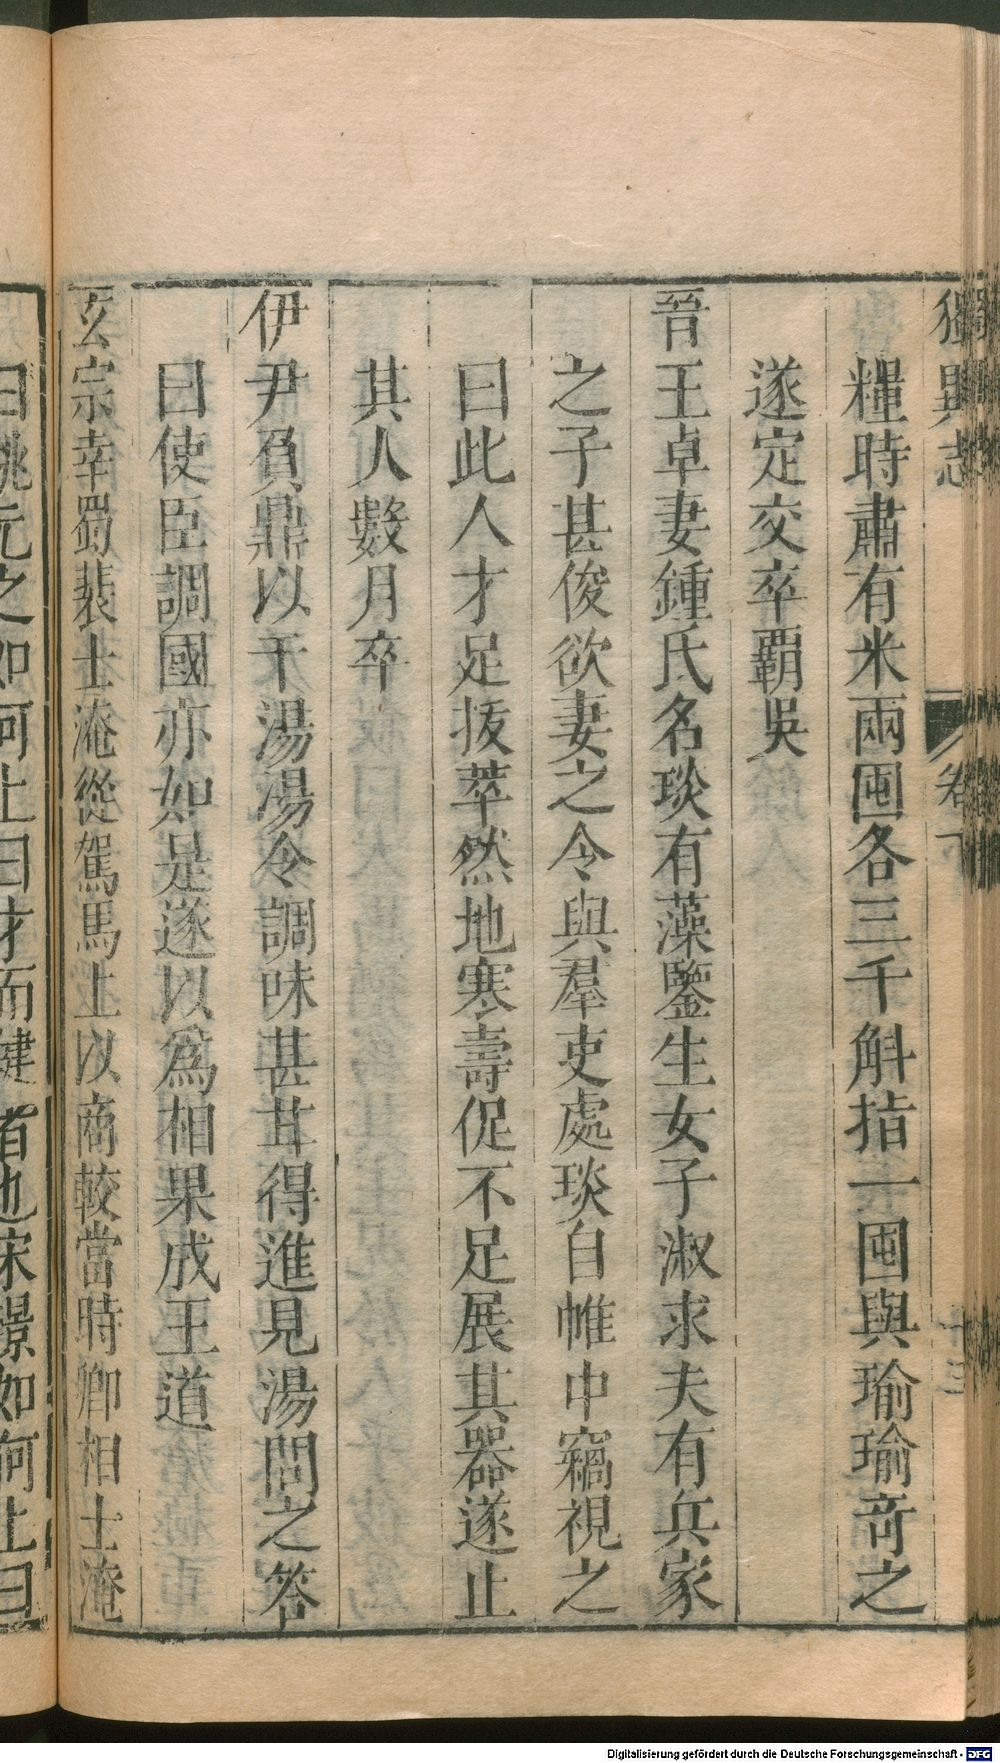 獨異志 卷下 十三
糧時肅有米兩囤各三千斛指一囤與瑜瑜竒之
遂定交卒覇吳
晉王卓妻鍾氏名琰有藻鑒生女子淑求夫有兵家
之子甚俊欲妻之令與羣吏處琰自帷中竊視之
曰此人才足拔萃然地寒壽促不足展其器遂止
其人數月卒
伊尹負鼎以干湯湯令調味甚甘得進見湯問之答
曰使臣調國亦如是遂以爲相果成王道
玄宗幸蜀裴士淹從駕馬上以商較當時卿相士淹
曰姚元之如何上曰才而健者也宋璟如何上曰
Digitalisierung gefördert durch die Deutsche Forschungsgemeinschaft - DFG